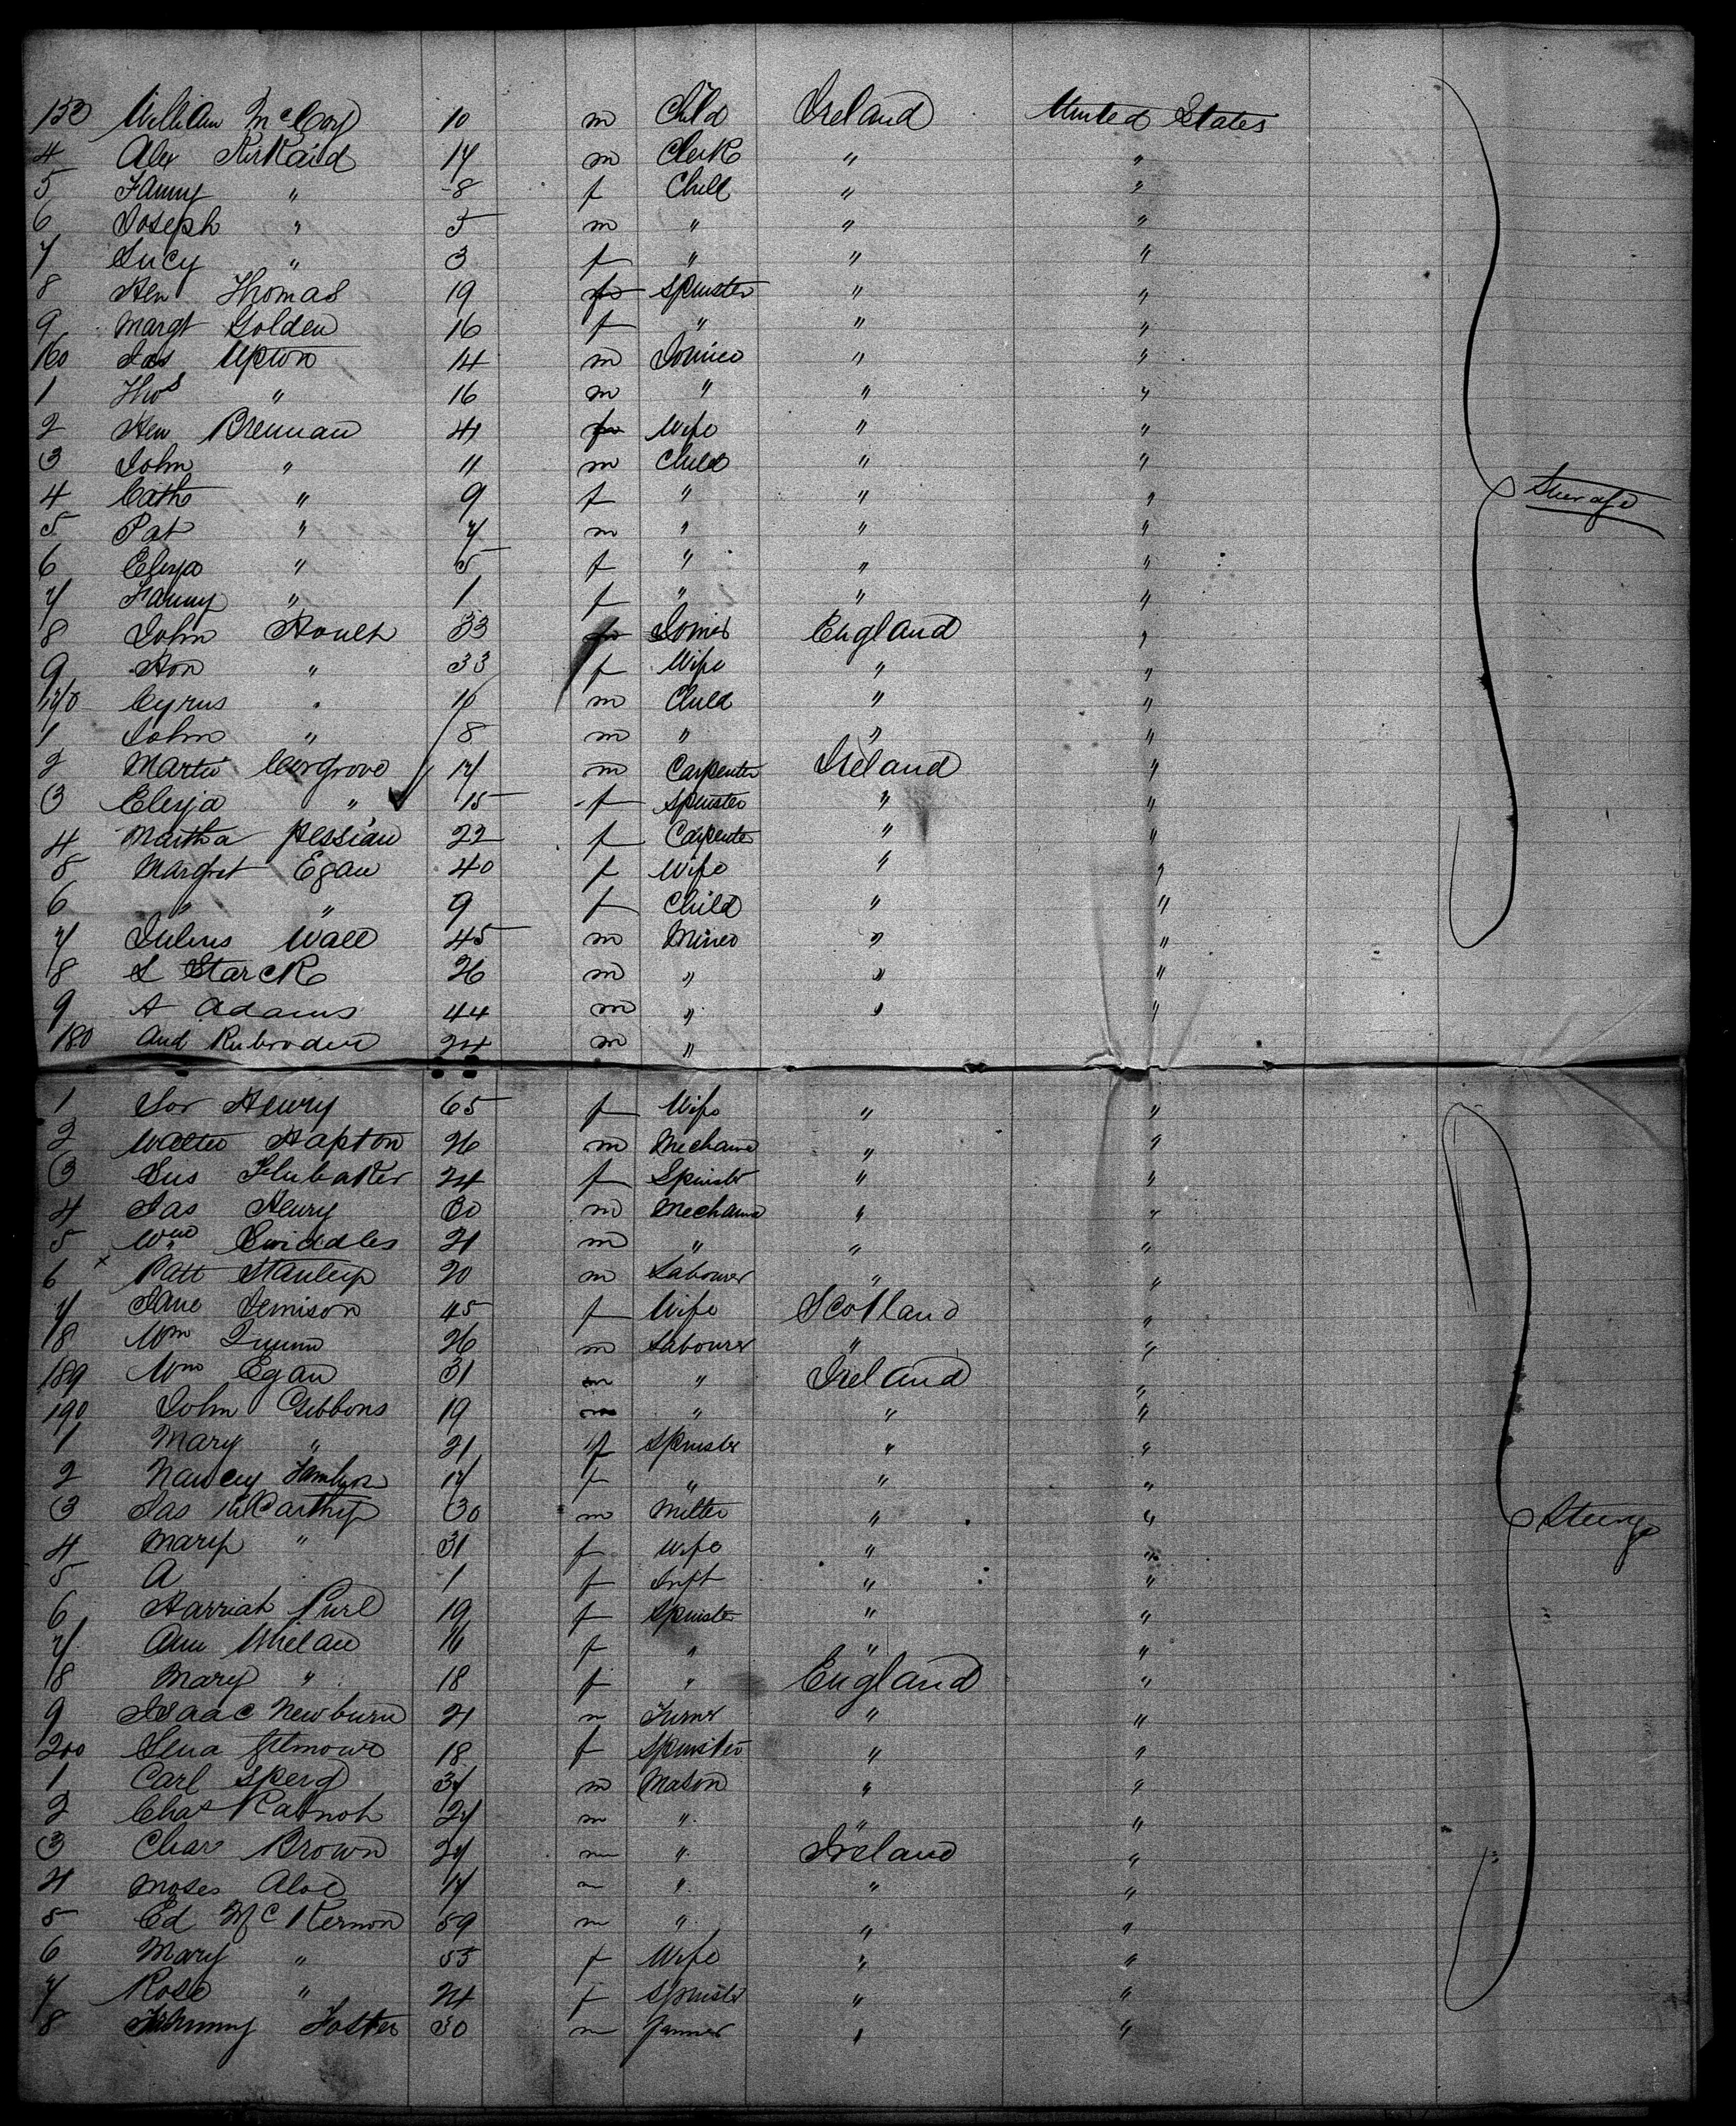 153 William McCoy 10 m Child Ireland United States
4 Alex Kirkaid 17 m Clerk " "
5 Fanny " 8 f Child " "
6 Joseph " 5 m " " "
7 Lucy " 3 f " " "
8 Hen Thomas 19 f Spinster " "
9 Margt Golden 16 f " " "
160 Jas Upton 14 m " "
1 Thos " 16 m " " "
2 Hen Brennan 41 f Wife " "
3 John " 11 m Child " "
4 Cath " 9 f " " " Steerage
5 Pat " 7 m " " "
6 Eliza " 5 f " " "
7 Fanny " 1 f " " "
8 John 33 England "
9 Hon " 33 f Wife " "
170 Cyrus " 10 m Child " "
1 John " 8 m " " "
2 Martin Corgrove 17 m Carpenter Ireland "
3 Eliza " 15 f Spinster " "
4 Martha Hessian 22 f Carpenter " "
5 Margret Egan 40 f Wife " "
6 " " 9 f Child " "
7 Julius Wall 45 m Miner " "
8 L Starck 26 m " " "
9 A Adams 44 m " " "
180 And 24 m "
1 Henry 65 f Wife " "
2 Walter Hapton 26 m Mechanic " "
3 Sus Flubaker 24 f Spinster " "
4 Jas Henry 30 m Mechanic " "
5 Wm Swiddles 21 m " " "
6 x Patt Stanley 20 m Labourer " "
7 Jane Jemison 45 f Wife Scotland "
8 Wm Quinn 26 m Labourer " "
189 Wm Egan 31 m " Ireland "
190 John Gibbons 19 m " " "
1 Mary " 21 f Spinster " "
2 Nancy 17 f " " "
3 Jas McCarthy 30 m " " Steerage
4 Mary " 31 f Wife " "
5 A 1 f Inft " "
6 Harriah Purl 19 f Spinster " "
7 Ann Whelan 16 f " " "
8 Mary " 18 f " England "
9 Isaac Newburn 21 m Turner " "
200 Lena Gilmour 18 f Spinster " "
1 Carl Sperg 37 m Mason " "
2 Chas 27 m " " "
3 Char Brown 27 m " Ireland "
4 Moses Aloe 17 m " " "
5 Ed McKernon 59 m " " "
6 Mary " 55 f Wife " "
7 Rose " 24 f Spinster " "
8 Foster 30 m Farmer " "